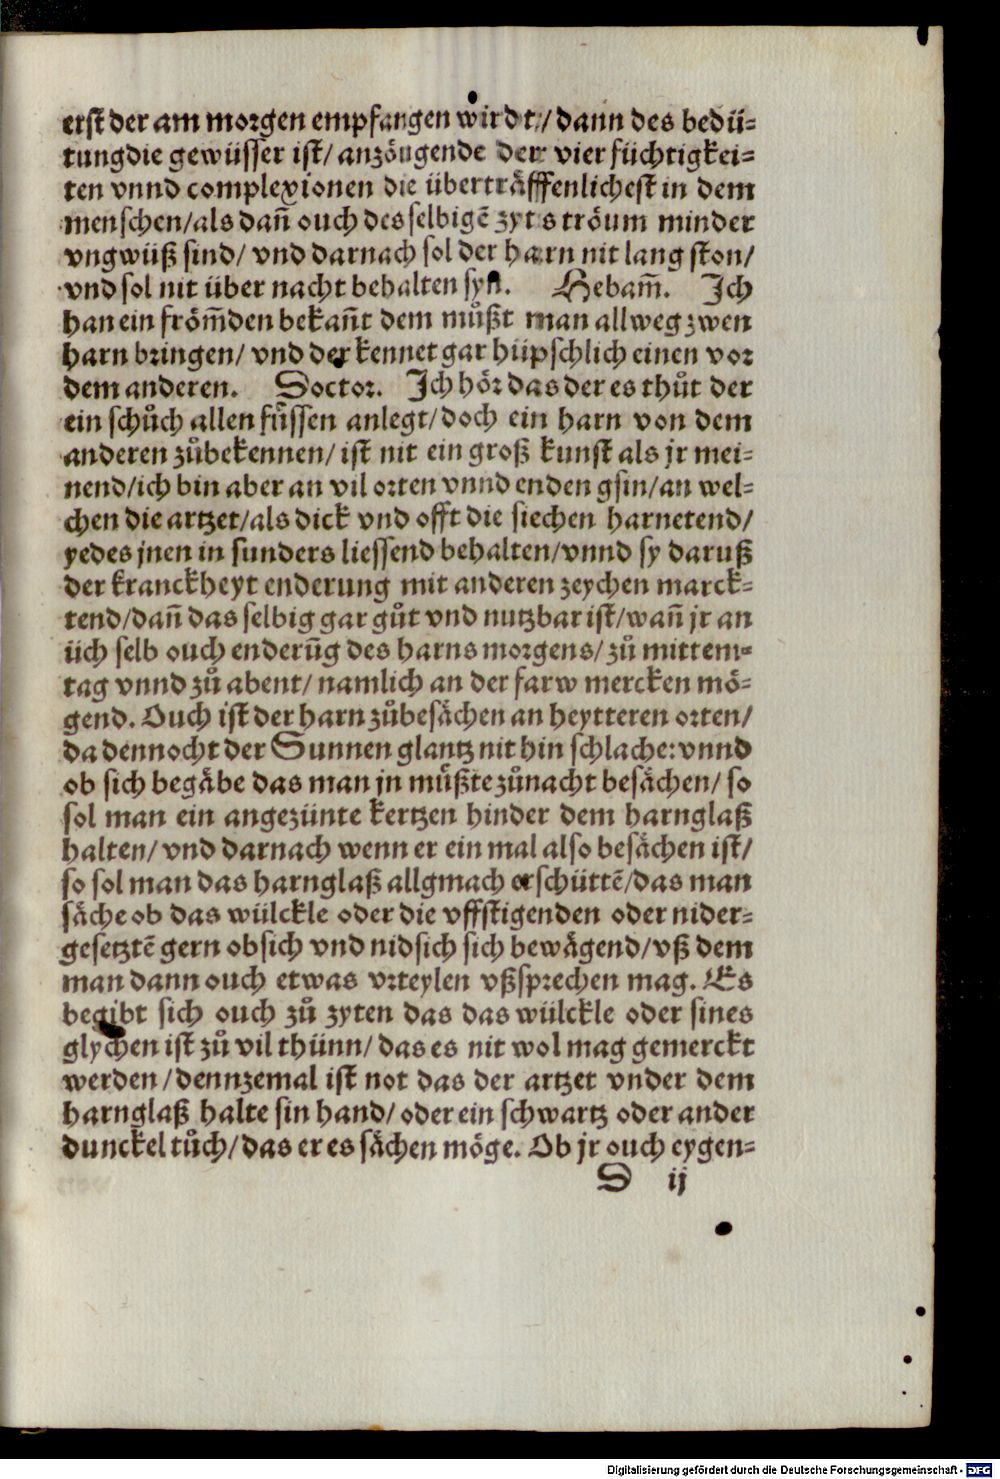 erst der am morgen empfangen wirdt/ dann des bedü⸗
tung die gewüsser ist/ anzöugende der vier füchtigkei⸗
ten vnnd complexionen die überträffenlichest in dem
menschen/ als dañ ouch des selbigē zyts tröum minder
vngwüß sind/ vnd darnach sol der harn nit lang ston/
vnd sol nit über nacht behalten syn. Hebam̄. Ich
han ein fröm̄den bekañt dem můßt man allweg zwen
harn bringen/ vnd der kennet gar hüpschlich einen vor
dem anderen. Doctor. Ich hör das der es thůt der
ein schůch allen füssen anlegt/ doch ein harn von dem
anderen zůbekennen/ ist nit ein groß kunst als jr mei⸗
nend/ ich bin aber an vil orten vnnd enden gsin/ an wel⸗
chen die artzet/ als dick vnd offt die siechen harnetend/
yedes jnen in sunders liessend behalten/ vnnd sy daruß
der kranckheyt enderung mit anderen zeychen marck⸗
tend/ dañ das selbig gar gůt vnd nutzbar ist/ wañ jr an
üch selb ouch enderūg des harns morgens/ zů mittem⸗
tag vnnd zů abent/ namlich an der farw mercken mö⸗
gend. Ouch ist der harn zůbesächen an heytteren orten/
da dennocht der Sunnen glantz nit hin schlache: vnnd
ob sich begäbe das man jn můßte zůnacht besächen/ so
sol man ein angezünte kertzen hinder dem harnglaß
halten/ vnd darnach wenn er ein mal also besächen ist/
so sol man das harnglaß allgmach erschüttē/ das man
säche ob das wülckle oder die vffstigenden oder nider⸗
gesetztē gern obsich vnd nidsich sich bewägend/ vß dem
man dann ouch etwas vrteylen vßsprechen mag. Es
begibt sich ouch zů zyten das das wülckle oder sines
glychen ist zů vil thünn/ das es nit wol mag gemerckt
werden/ dennzemal ist not das der artzet vnder dem
harnglaß halte sin hand/ oder ein schwartz oder ander
dunckel tůch/ das er es sächen möge. Ob jr ouch eygen⸗
D ij
Digitalisierung gefördert durch die Deutsche Forschungsgemeinschaft - DFG